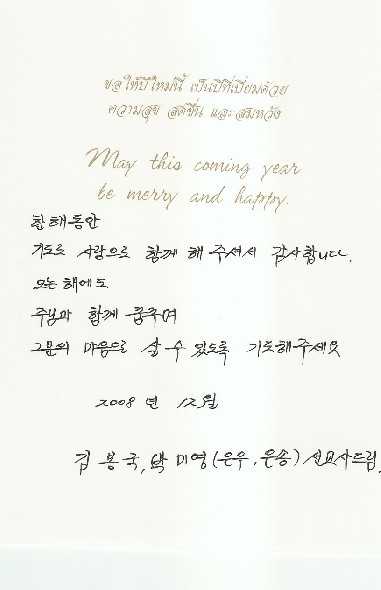 ขอให้ปีใหม่นี้ เป็นปีที่เปี่ยมด้วย
ความสุข สดชื่น และสมหวัง
May this coming year
be merry and happy.
한해동안
기도로 사랑으로 함께 해 주셔서 감사합니다.
오는해에도
주님과 함께 꿈꾸며
그분의 마음으로 살 수 있도록 기도해주세요
2008년 12월
김봉국, 박미영(은우, 은송) 선교사드림.